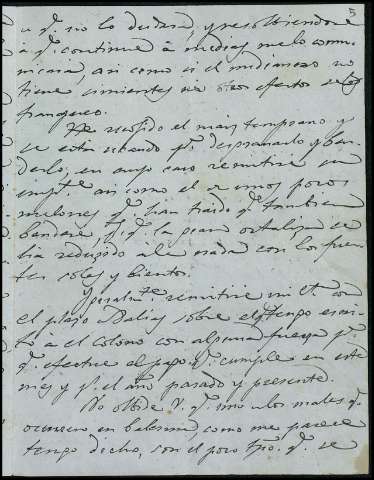 5
a q.e no lo dudara, y resolbiendose
a q.e continue à medias me lo comu-
nicara, asi como si el medianero no
tiene simientes ni otros efectos de
franqueo.
He recojido el mais temprano y
se está secando p.a desgranarlo y ben-
derlo, en cuyo caso remitire su
imp.te asi como el de unos pocos
melones q.e han traido q.e tambien
bendere, p.s q.e la hortaliza se
ha reducido a la nada con los fuer-
tes soles y bientos.
Igualm.te remitire mi C.ta con
el plazo Dalias sobre el q.e tengo escri-
to a el Colono con alguna fuerza p.a
q.e efectue el pago q.e cumple en este
mes y p.r el año pasado y presente.
No olbide V. q.e uno de los males q.e
ocurren en balerma, como me parece
tengo dicho, con el poco tpo. q.e se